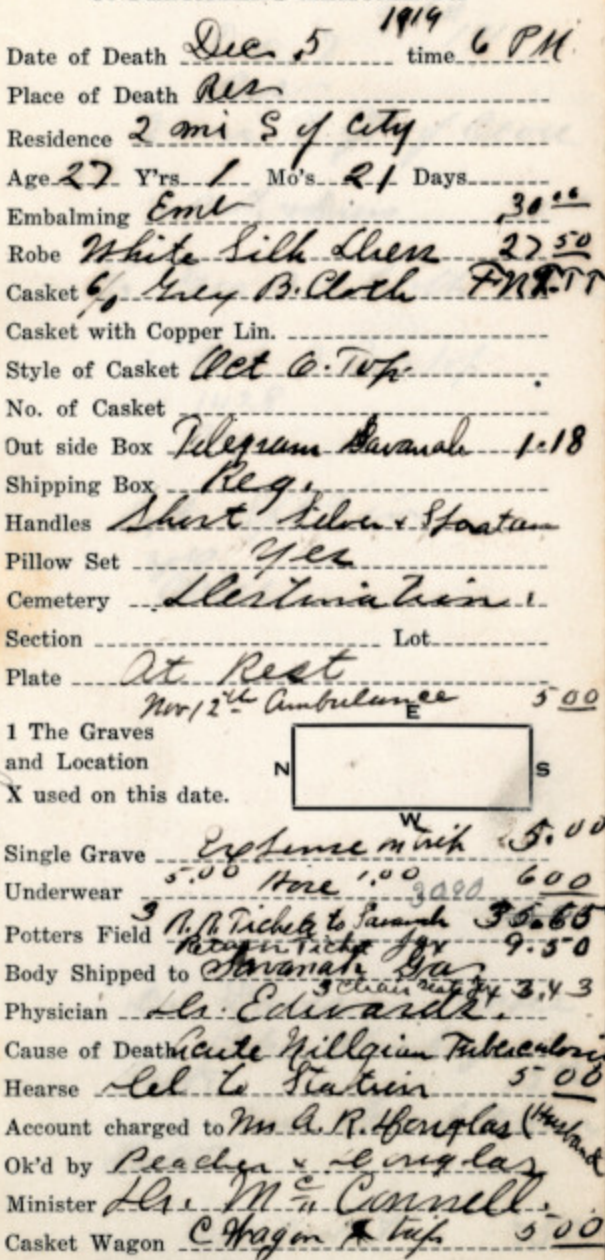 1919
Date of Death Dec 5 time 6 PM
Place of Death Res
Residence 2 mi S of City
Age 27 Y'rs 1 Mo's 21 Days
Embalming Emb 30 00
Robe White Silk Dress 27 50
Casket 6/0 Grey B. Cloth
Casket with Copper Lin.
Style of Casket Oct O. Top
No. of Casket
Out side Box Telegram Savanah 1.18
Shipping Box Reg.
Handles Short Silver
Pillow Set Yes
Cemetery Destination
Section Lot
Plate At Rest
Nov 12th Ambulance 5 00
E
1 The Graves
and Location
X used on this date.
N S
W
Single Grave Expense 5.00
Underwear 5.00 Hose 1.00 6 00
Potters Field 3 R.R. Tickets to Savanah 35.65
9.50
Body Shipped to Savanah Ga
3 Chair 3.43
Physician Dr. Edwards.
Cause of Death Acute Tuberculosis
Hearse Del to Station 5 00
Account charged to A. R. Douglas (Husband
Ok'd by Peacher & Douglas
Minister Dr. McConnell.
Casket Wagon C Wagon trip 5 00